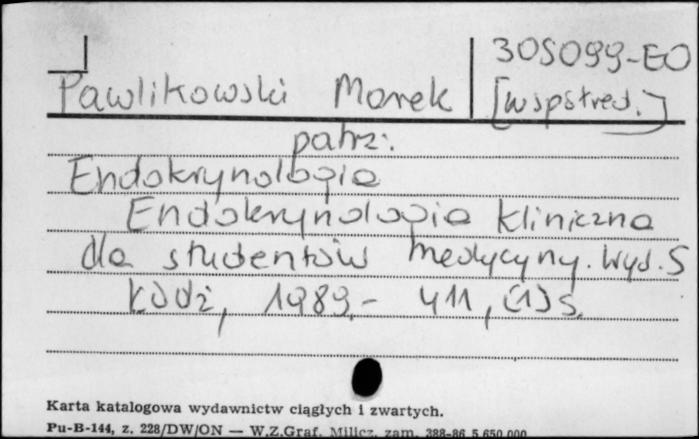 305099-EO
Pawlikowski Marek [współred.]
patrz:
Endokrynologia
Endokrynologia kliniczna
dla studentów medycyny. Wyd. 5
Łódź, 1989.- 411, [1] s.
Karta katalogowa wydawnictw ciągłych i zwartych.
Pu-B-144, z. 228/DW/ON — W.Z.Graf. Milicz, zam. 388-86 5.650.000